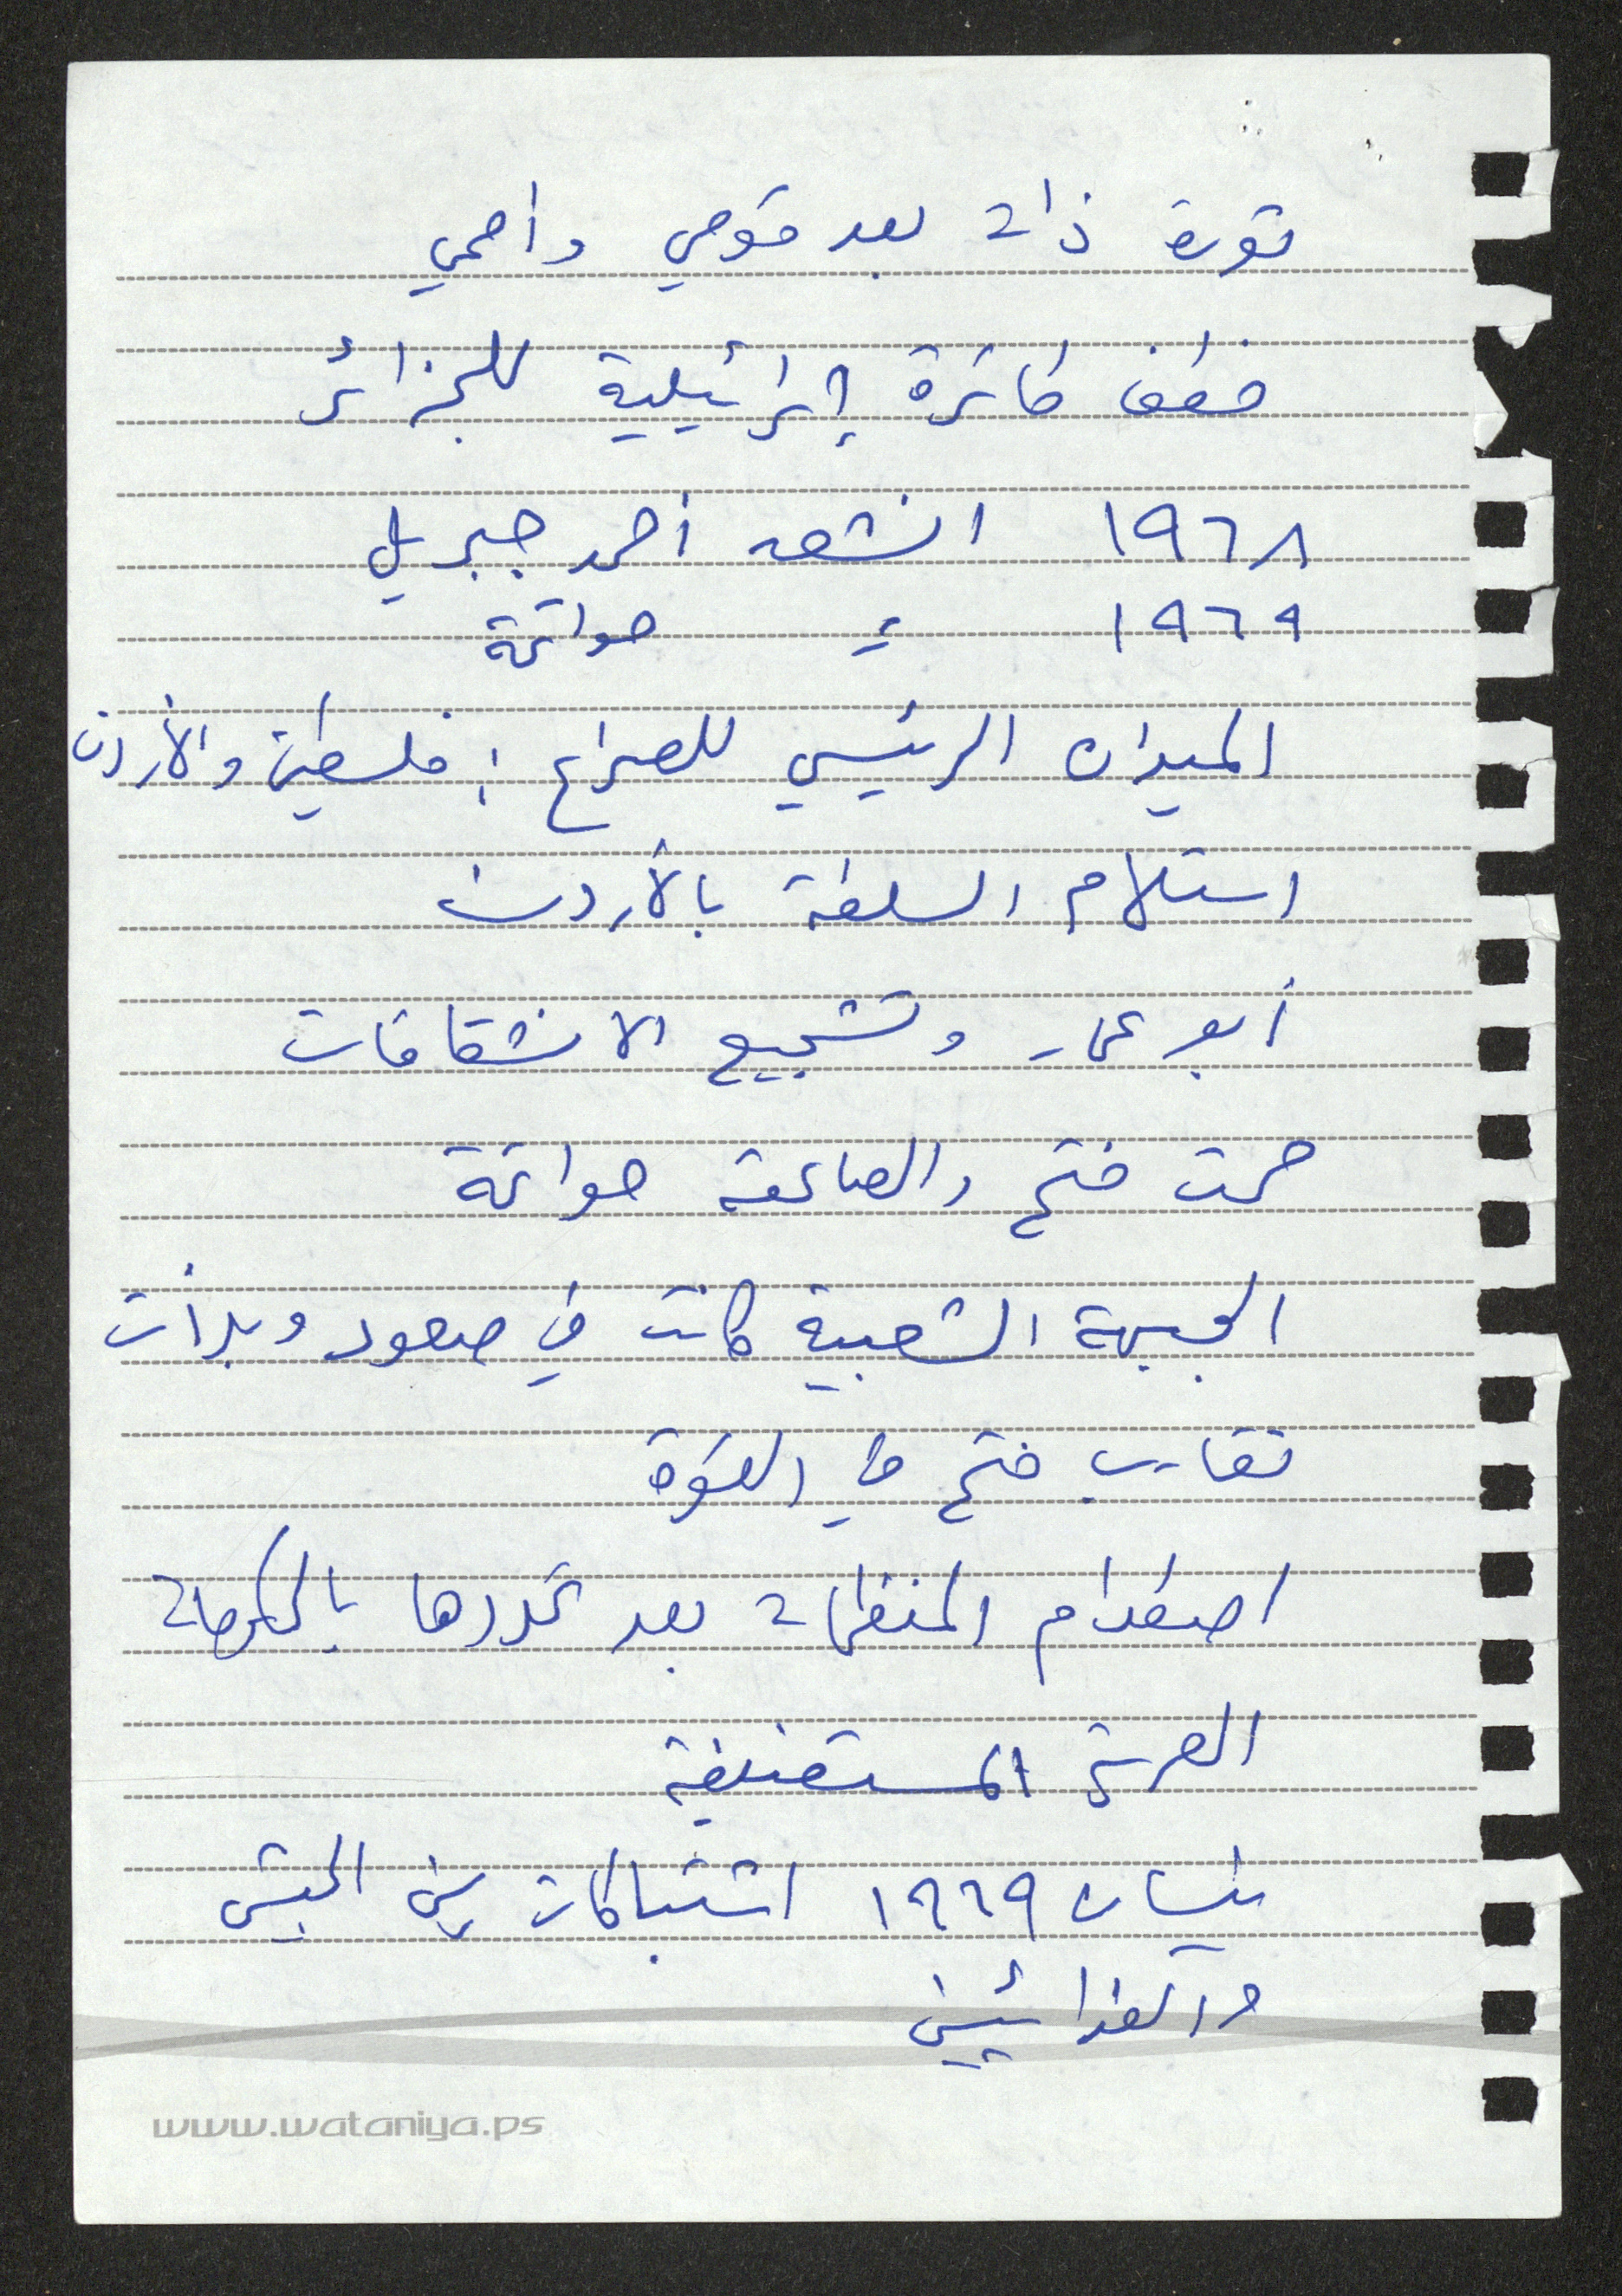 ثورة ذات بعد قومي وأممي
خطف طائرة إسرائيلية للجزائر
١٩٦٨ انشق أحمد جبريل
١٩٦٩ = حواتمة
الميدان الرئيسي للصراع : فلسطين والأردن
استلام السلطة بالأردن
أبو عمار وتشجيع الانشقاقات
حمت فتح والصاعقة حواتمة
الجبهة الشعبية كانت في صعود وبدأت
تقارب فتح في القوة
اصطدام المنظمات بعد تمددها بالحكومات
العربية المستضيفة
نيسان ١٩٦٩ اشتباكات بين الجيش
والفدائيين
www.wataniya.ps